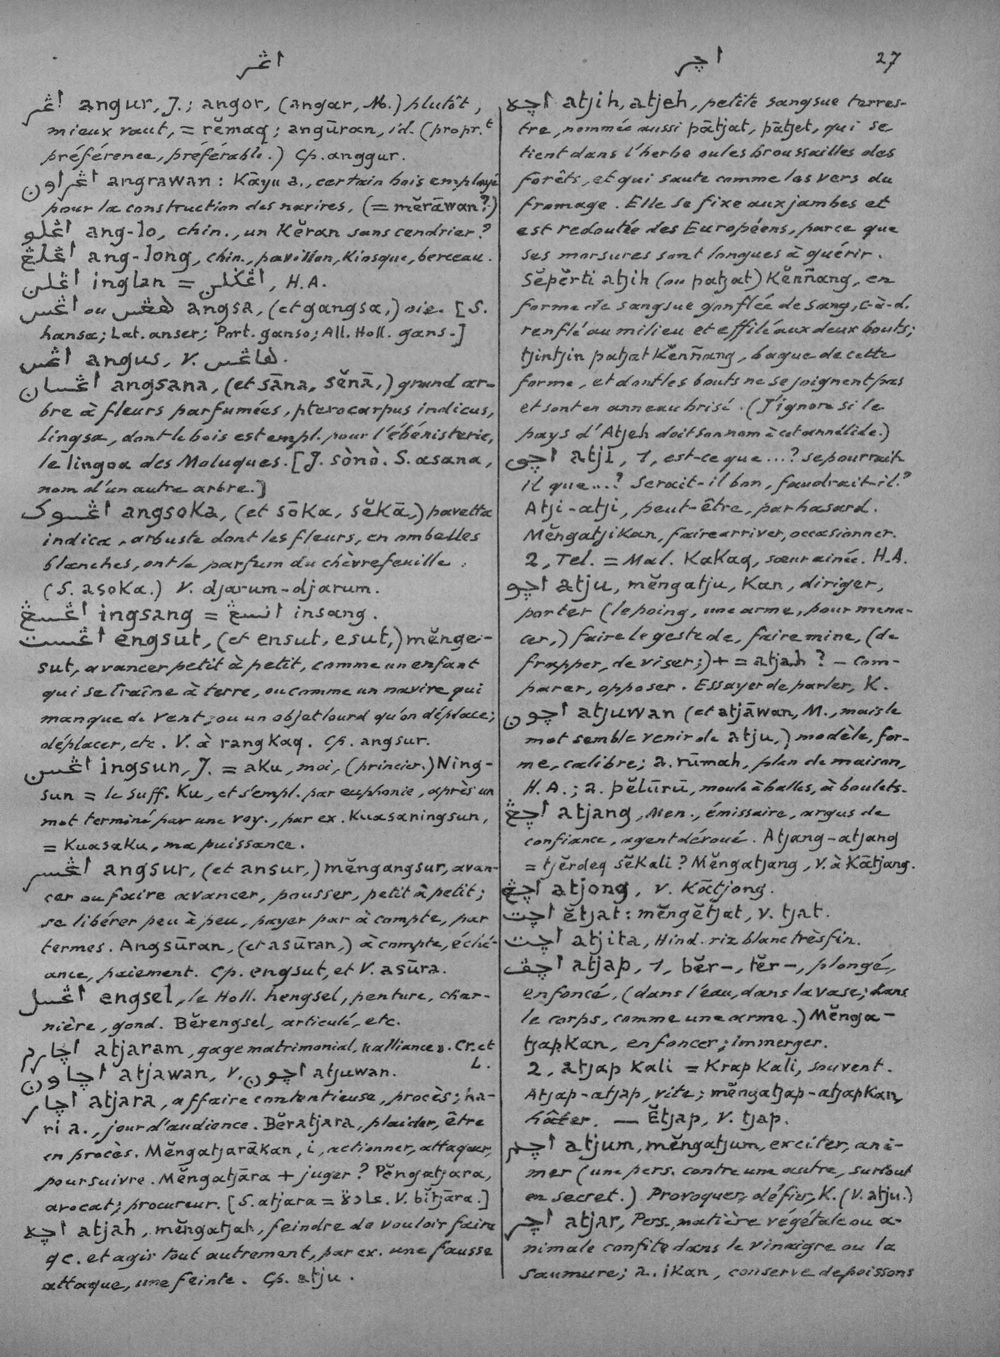 اڠر
اچر
27
اڠر angur, J.; angor, (angar, M.) plutôt,
mieux vaut, = rĕmaq; angūran, id. (propr.t
préférence, préférable.) Cp. anggur.
اڠراون angrawan: Kāyu a., certain bois employé
pour la construction des navires, (= mĕrāwan?)
اڠلو ang-lo, chin., un Kĕran sans cendrier?
اڠلڠ ang-long, chin., pavillon, Kiosque, berceau.
اڠلن inglan = اڠکلن, H.A.
اڠس ou ڠڠس angsa, (et gangsa,) oie. [S.
hansa; Lat. anser; Port. ganso; All. Holl. gans.]
اڠس angus, V. هاڠس.
اڠسان angsana, (et sāna, sĕnā,) grand ar-
bre à fleurs parfumées, pterocarpus indicus,
lingsa, dont le bois est empl. pour l'ébénisterie,
le lingoa des Moluques. [J. sònò. S. asana,
nom d'un autre arbre.]
اڠسوک angsoKa, (et sōKa, sĕkā,) pavetta
indica, arbuste dont les fleurs, en ombelles
blanches, ont le parfum du chèvrefeuille.
(S. asoKa.) V. djarum-djarum.
اڠسڠ ingsang = انسڠ insang.
اڠست engsut, (et ensut, esut,) mĕnge-
sut, avancer petit à petit, comme un enfant
qui se traîne à terre, ou comme un navire qui
manque de vent, ou un objet lourd qu'on déplace;
déplacer, etc. V. à rangKaq. Cp. angsur.
اڠسن ingsun, J. = aKu, moi, (princier.) Ning-
sun = le suff. Ku, et s'empl. par euphonie, après un
mot terminé par une voy., par ex. Kuasaningsun,
= KuasaKu, ma puissance.
اڠسر angsur, (et ansur,) mĕngangsur, avan-
cer ou faire avancer, pousser, petit à petit;
se libérer peu à peu, payer par à compte, par
termes. Angsūran, (et asūran,) à compte, éché-
ance, paiement. Cp. engsut, et V. asūra.
اڠسل engsel, le Holl. hengsel, penture, char-
nière, gond. Bĕrengsel, articulé, etc.
اچارم atjaram, gage matrimonial, alliances. Cr. et
L.
اچاون atjawan, V. اچون atjuwan.
اچار atjara, affaire contentieuse, procès; ha-
ri a., jour d'audience. Bĕratjara, plaider, être
en procès. MĕngatjarāKan, i, actionner, attaquer,
poursuivre. Mĕngatjāra + juger? Pĕngatjara,
avocat; procureur. [S. atjara = عادة. V. bitjāra.]
اچه atjah, mĕngatjah, feindre de vouloir faire
qc. et agir tout autrement, par ex. une fausse
attaque, une feinte. Cp. atju.
اچه atjih, atjeh, petite sangsue terres-
tre, nommée aussi pātjat, pātjet, qui se
tient dans l'herbe ou les broussailles des
forêts, et qui saute comme les vers du
fromage. Elle se fixe aux jambes et
est redoutée des Européens, parce que
ses morsures sont longues à guérir.
Sĕpĕrti atjih (ou patjat) Kĕnñang, en
forme de sangsue gonflée de sang, c-à-d.
renflé au milieu et effilé aux deux bouts;
tjintjin patjat Kĕnñang, bague de cette
forme, et dont les bouts ne se joignent pas
et sont en anneau brisé. (J'ignore si le
pays d'Atjeh doit son nom à cet annélide.)
اچي atji, 1, est-ce que...? se pourrait-
il que...? Serait-il bon, faudrait-il?
Atji-atji, peut-être, par hasard.
MĕngatjiKan, faire arriver, occasionner.
2, Tel. = Mal. KaKaq, sœur ainée. H.A.
اچو atju, mĕngatju, Kan, diriger,
porter (le poing, une arme, pour mena-
cer,) faire le geste de, faire mine, (de
frapper, de viser;) + = atjah? – Com-
parer, opposer. Essayer de parler, K.
اچون atjuwan (et atjāwan, M., mais le
mot semble venir de atju,) modèle, for-
me, calibre; a. rūmah, plan de maison,
H.A.; a. pĕlūrū, moule à balles, à boulets.
اچڠ atjang, Men., émissaire, argus de
confiance, agent dévoué. Atjang-atjang
= tjĕrdeq sĕKali? Mĕngatjang, V. à Kātjang.
اچڠ atjong, V. Kātjong.
اچت ĕtjat: mĕngĕtjat, V. tjat.
اچت atjita, Hind. riz blanc très fin.
اچڤ atjap, 1, bĕr-, tĕr-, plongé,
enfoncé, (dans l'eau, dans la vase; dans
le corps, comme une arme.) Mĕnga-
tjapKan, enfoncer; immerger.
2, atjap Kali = Krap Kali, souvent.
Atjap-atjap, vite; mĕngatjap-atjapKan,
hâter. — Ĕtjap, V. tjap.
اچم atjum, mĕngatjum, exciter, ani-
mer (une pers. contre une autre, surtout
en secret.) Provoquer, défier, K. (V. atju.)
اچر atjar, Pers., matière végétale ou a-
nimale confite dans le vinaigre ou la
saumure; a. iKan, conserve de poissons